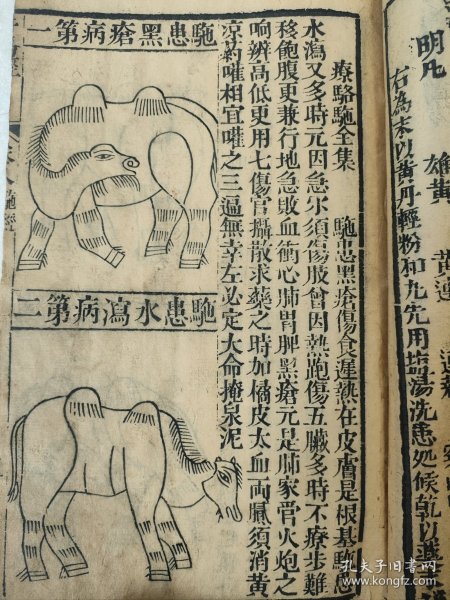 明凡
雄黄
黄連
右為末以黄丹輕粉和丸先用塩湯洗患処候乾以
療駱駞全集
駞患黑瘡傷食遲熱在皮膚是根基駞患
水瀉又多時元因急尔須傷肢會因熱跑傷五臟多時不療歩難
移飽腹更兼行地急敗血衝心肺胃脾黑瘡元是肺家管火炮之
响辨高低更用七傷官攝散求藥之時加橘皮太血両膩須消黄
凉葯嚾相宜嚾之三遍無幸左必定大命掩泉泥
駞患黑瘡病第一
駞患水瀉病第二
孔夫子旧书网
www.kongfz.com